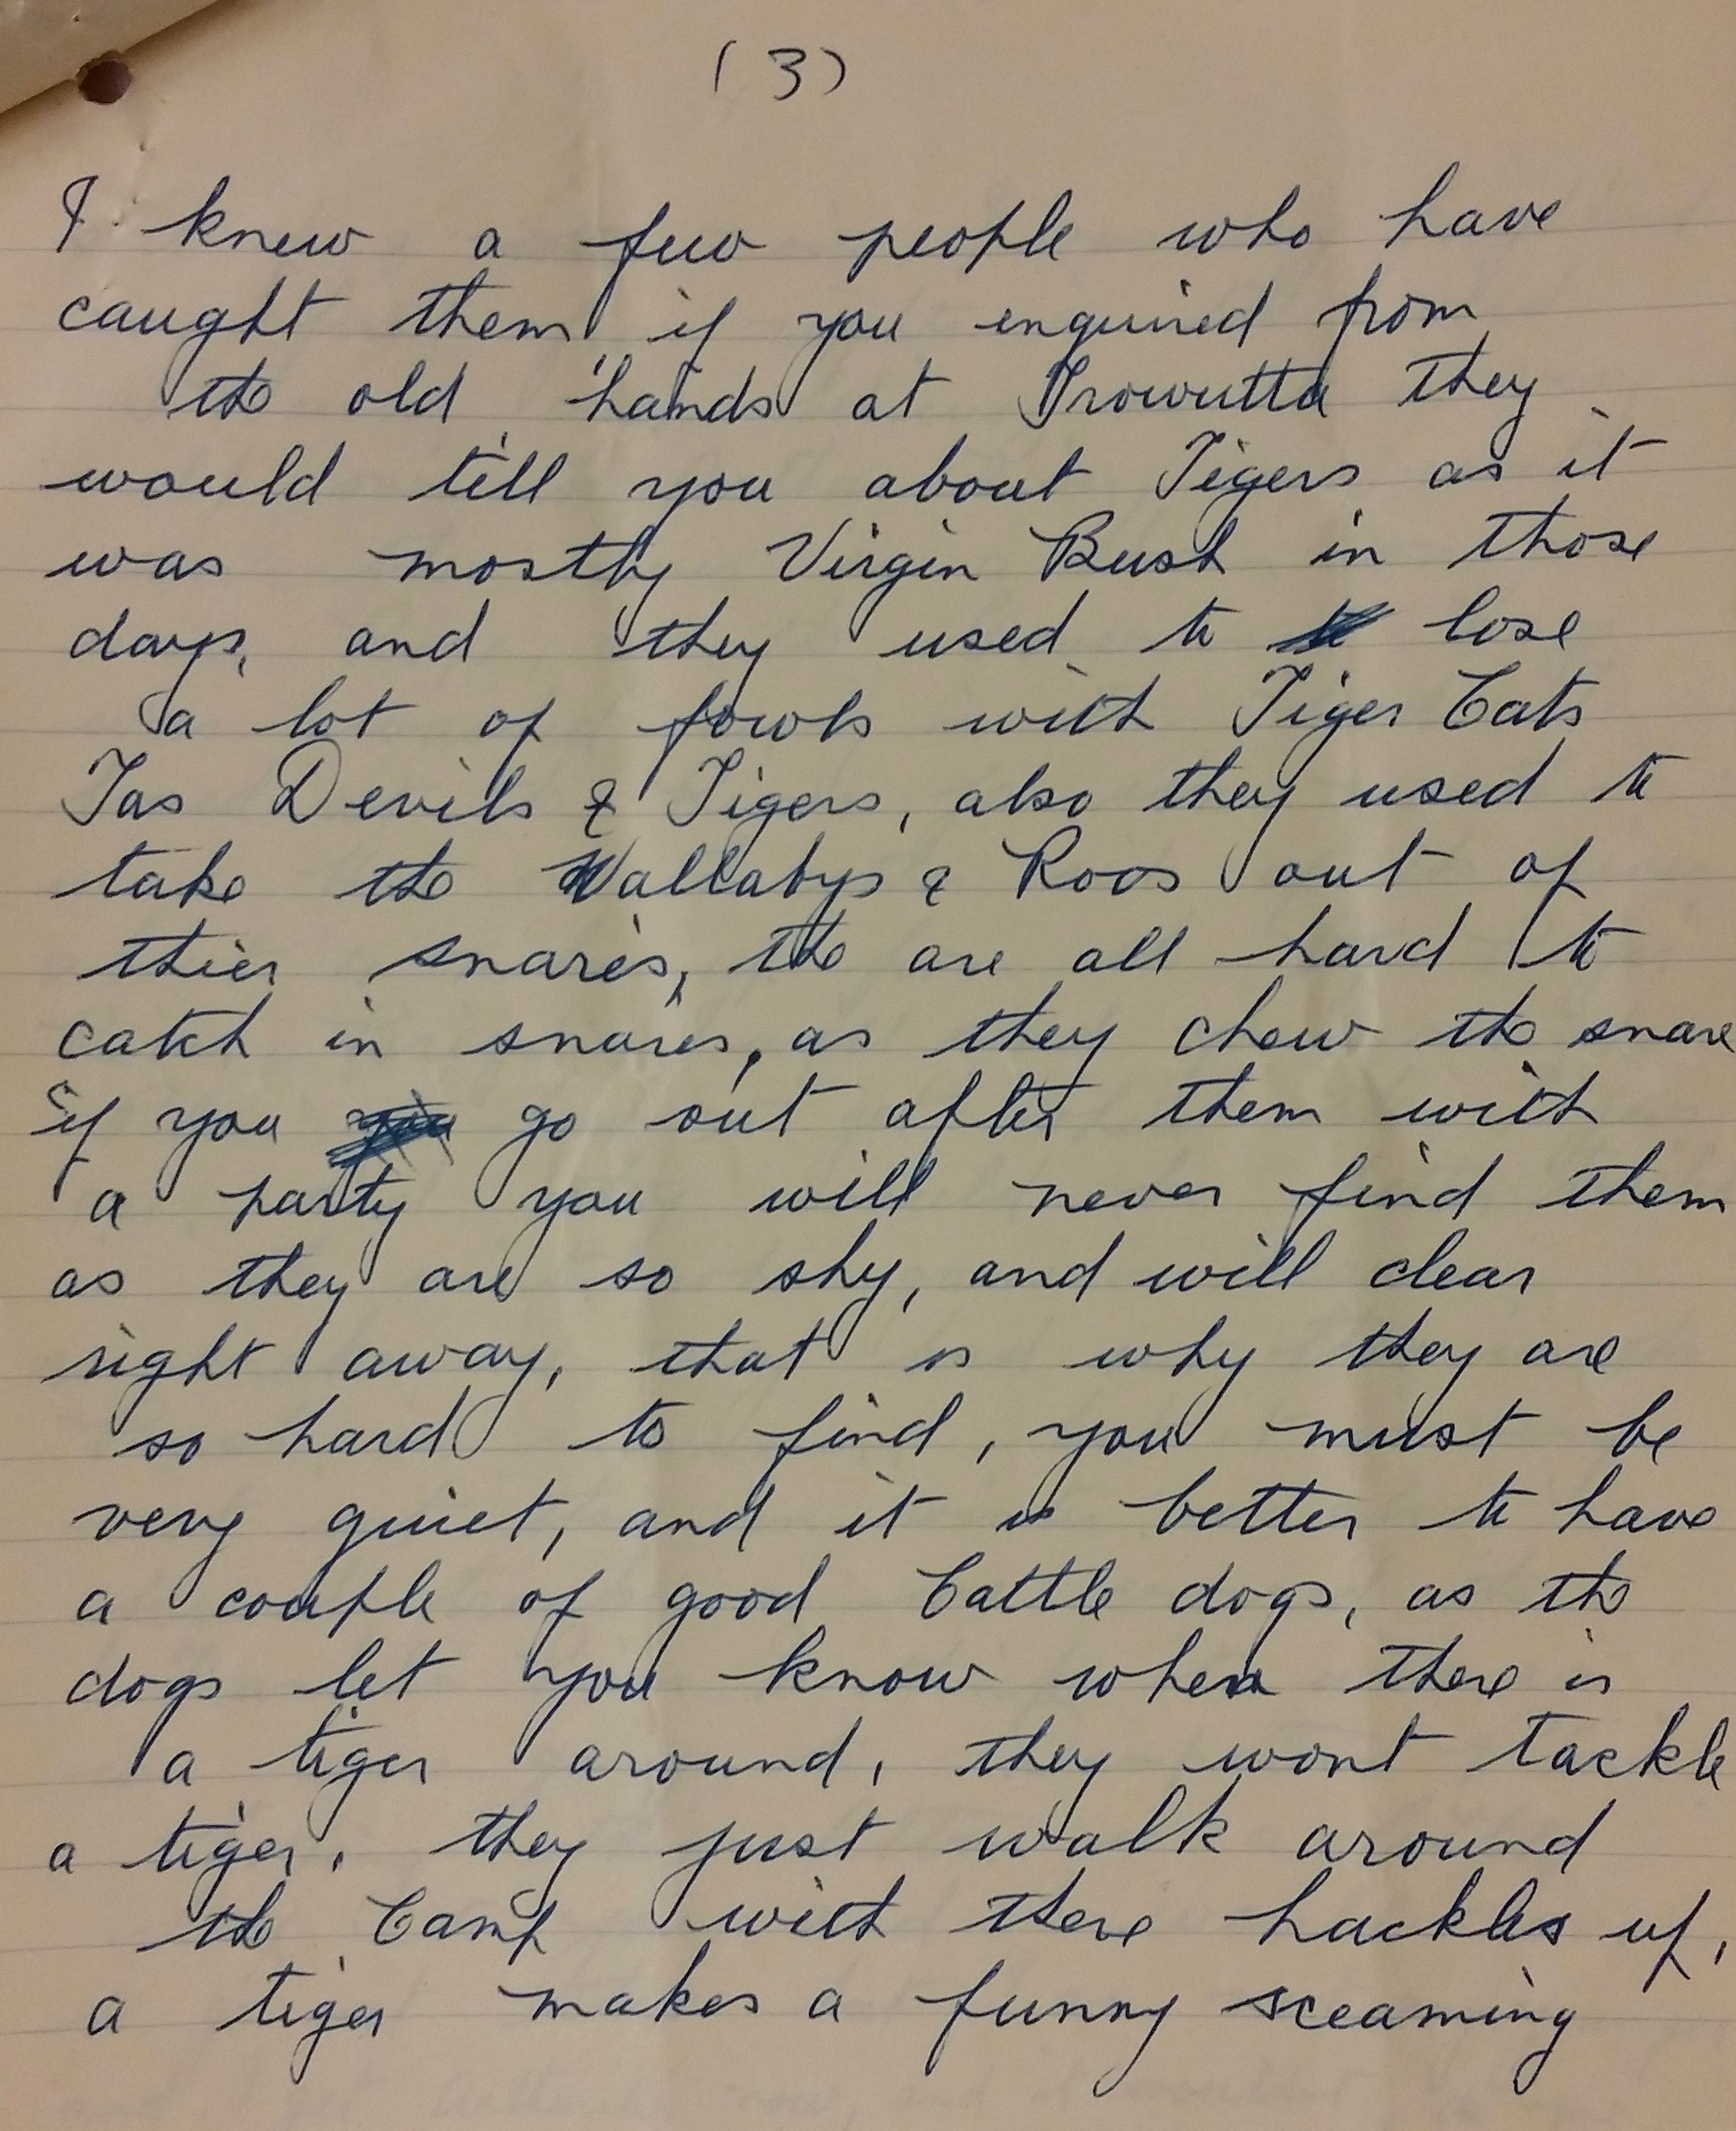 (3)
I knew a few people who have
caught them, if you enquired from
the old hands at Trowutta they
would tell you about Tigers as it
was mostly Virgin Bush in those
days, and they used to lose
a lot of fowls with Tiger Cats
Tas Devils & Tigers, also they used to
take the Wallabys & Roos out of
thier snares, the are all hard to
catch in snares, as they chew the snare
if you go out after them with
a party you will never find them
as they are so shy, and will clear
right away, that is why they are
so hard to find, you must be
very quiet, and it is better to have
a couple of good Cattle dogs, as the
dogs let you know when there is
a tiger around, they wont tackle
a tiger, they just walk around
the Camp with there hackles up,
a tiger makes a funny sceaming